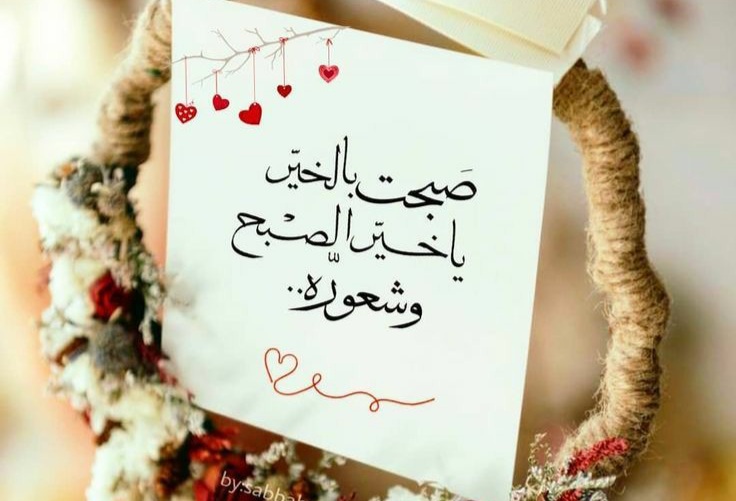 صَبحت بالخيّر
يا خيّر الصّبْح
وشعورّه..
by:sabbah